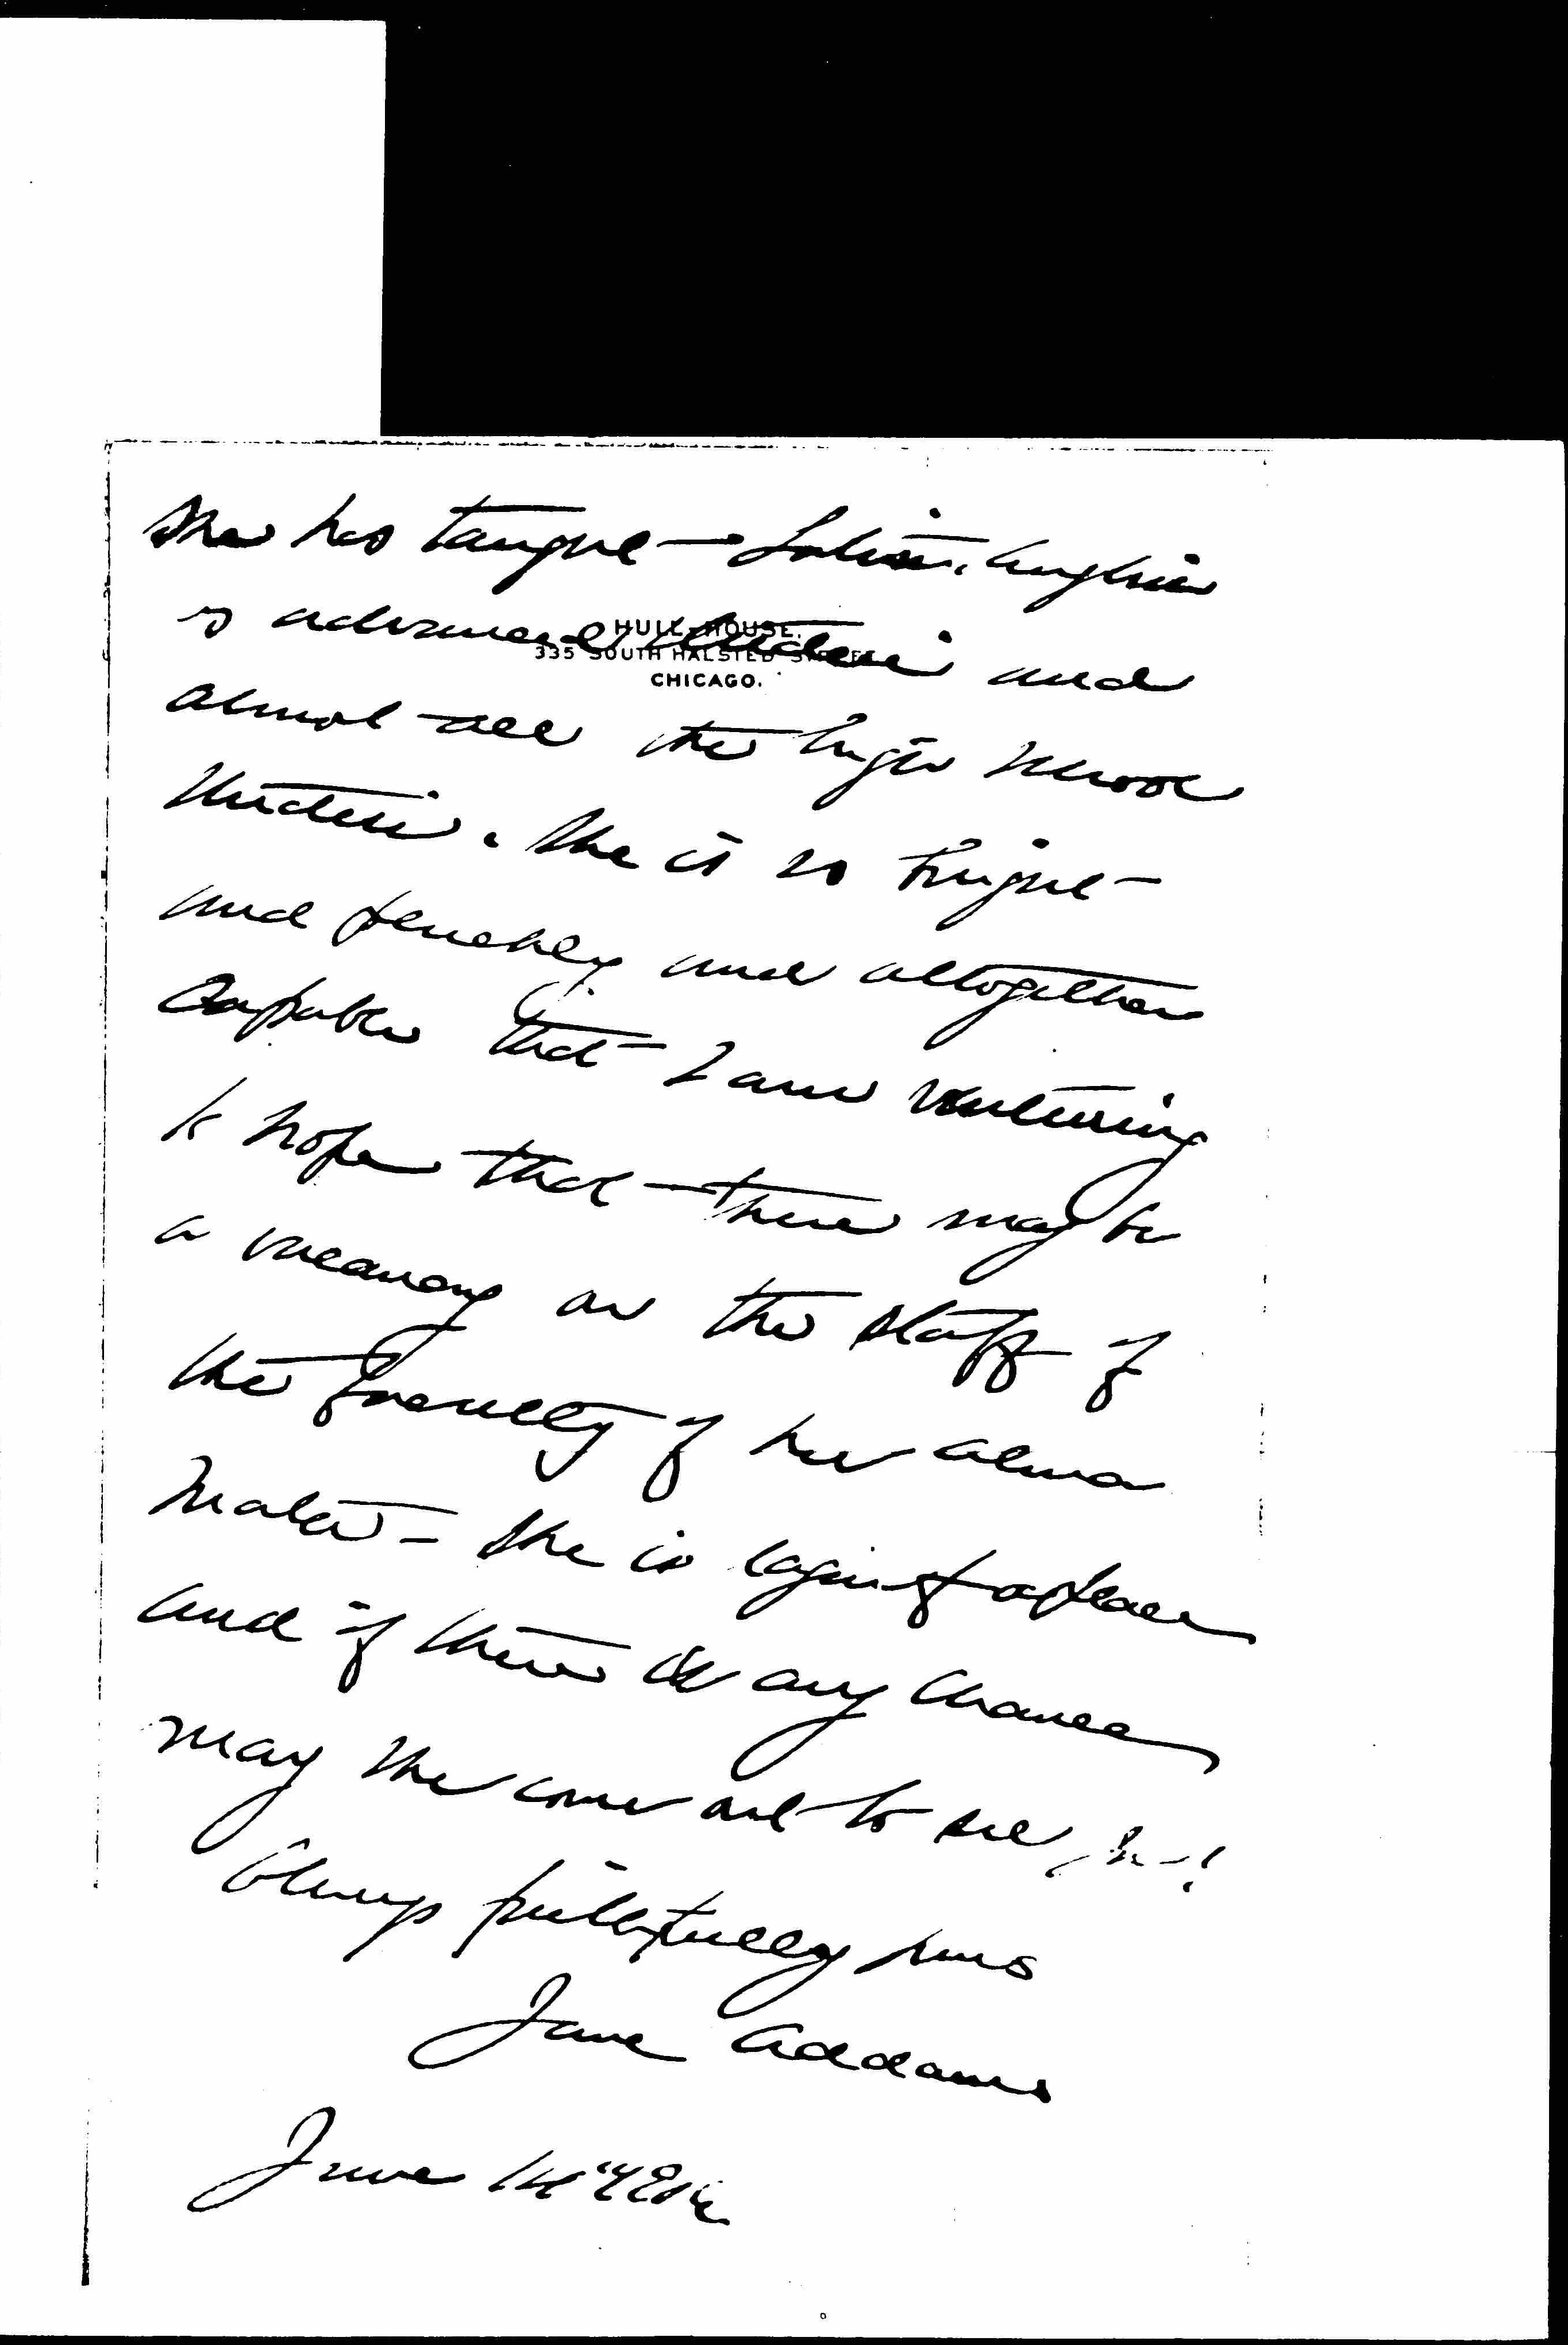 She has taught Latin, English
HULL-HOUSE.
335 SOUTH HALSTED STREET
CHICAGO.
to advanced students and
almost all the high school
studies. She is so bright
and scholarly and altogether
capable that I am venturing
to hope that there may be
a vacancy on the staff of
the faculty of her alma
Mater - She is a place
and if there is any chance
may she come out to see
Always faithfully yours
Jane Addams
June